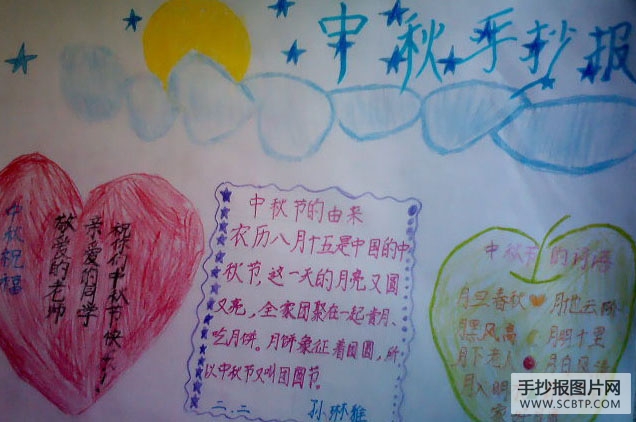 中秋手抄报
中秋祝福
敬爱的老师
亲爱的同学
祝你们中秋节快
中秋节的由来
农历八月十五是中国的中
秋节,这一天的月亮又圆
又亮,全家团聚在一起赏月、
吃月饼。月饼象征着团圆,所
以中秋节又叫团圆节。
二.二 孙琳雅
中秋节的词语
月旦春秋 月地云阶
月黑风高 月明千里
月下老人 月白风清
手抄报图片网
WWW.SCBTP.COM